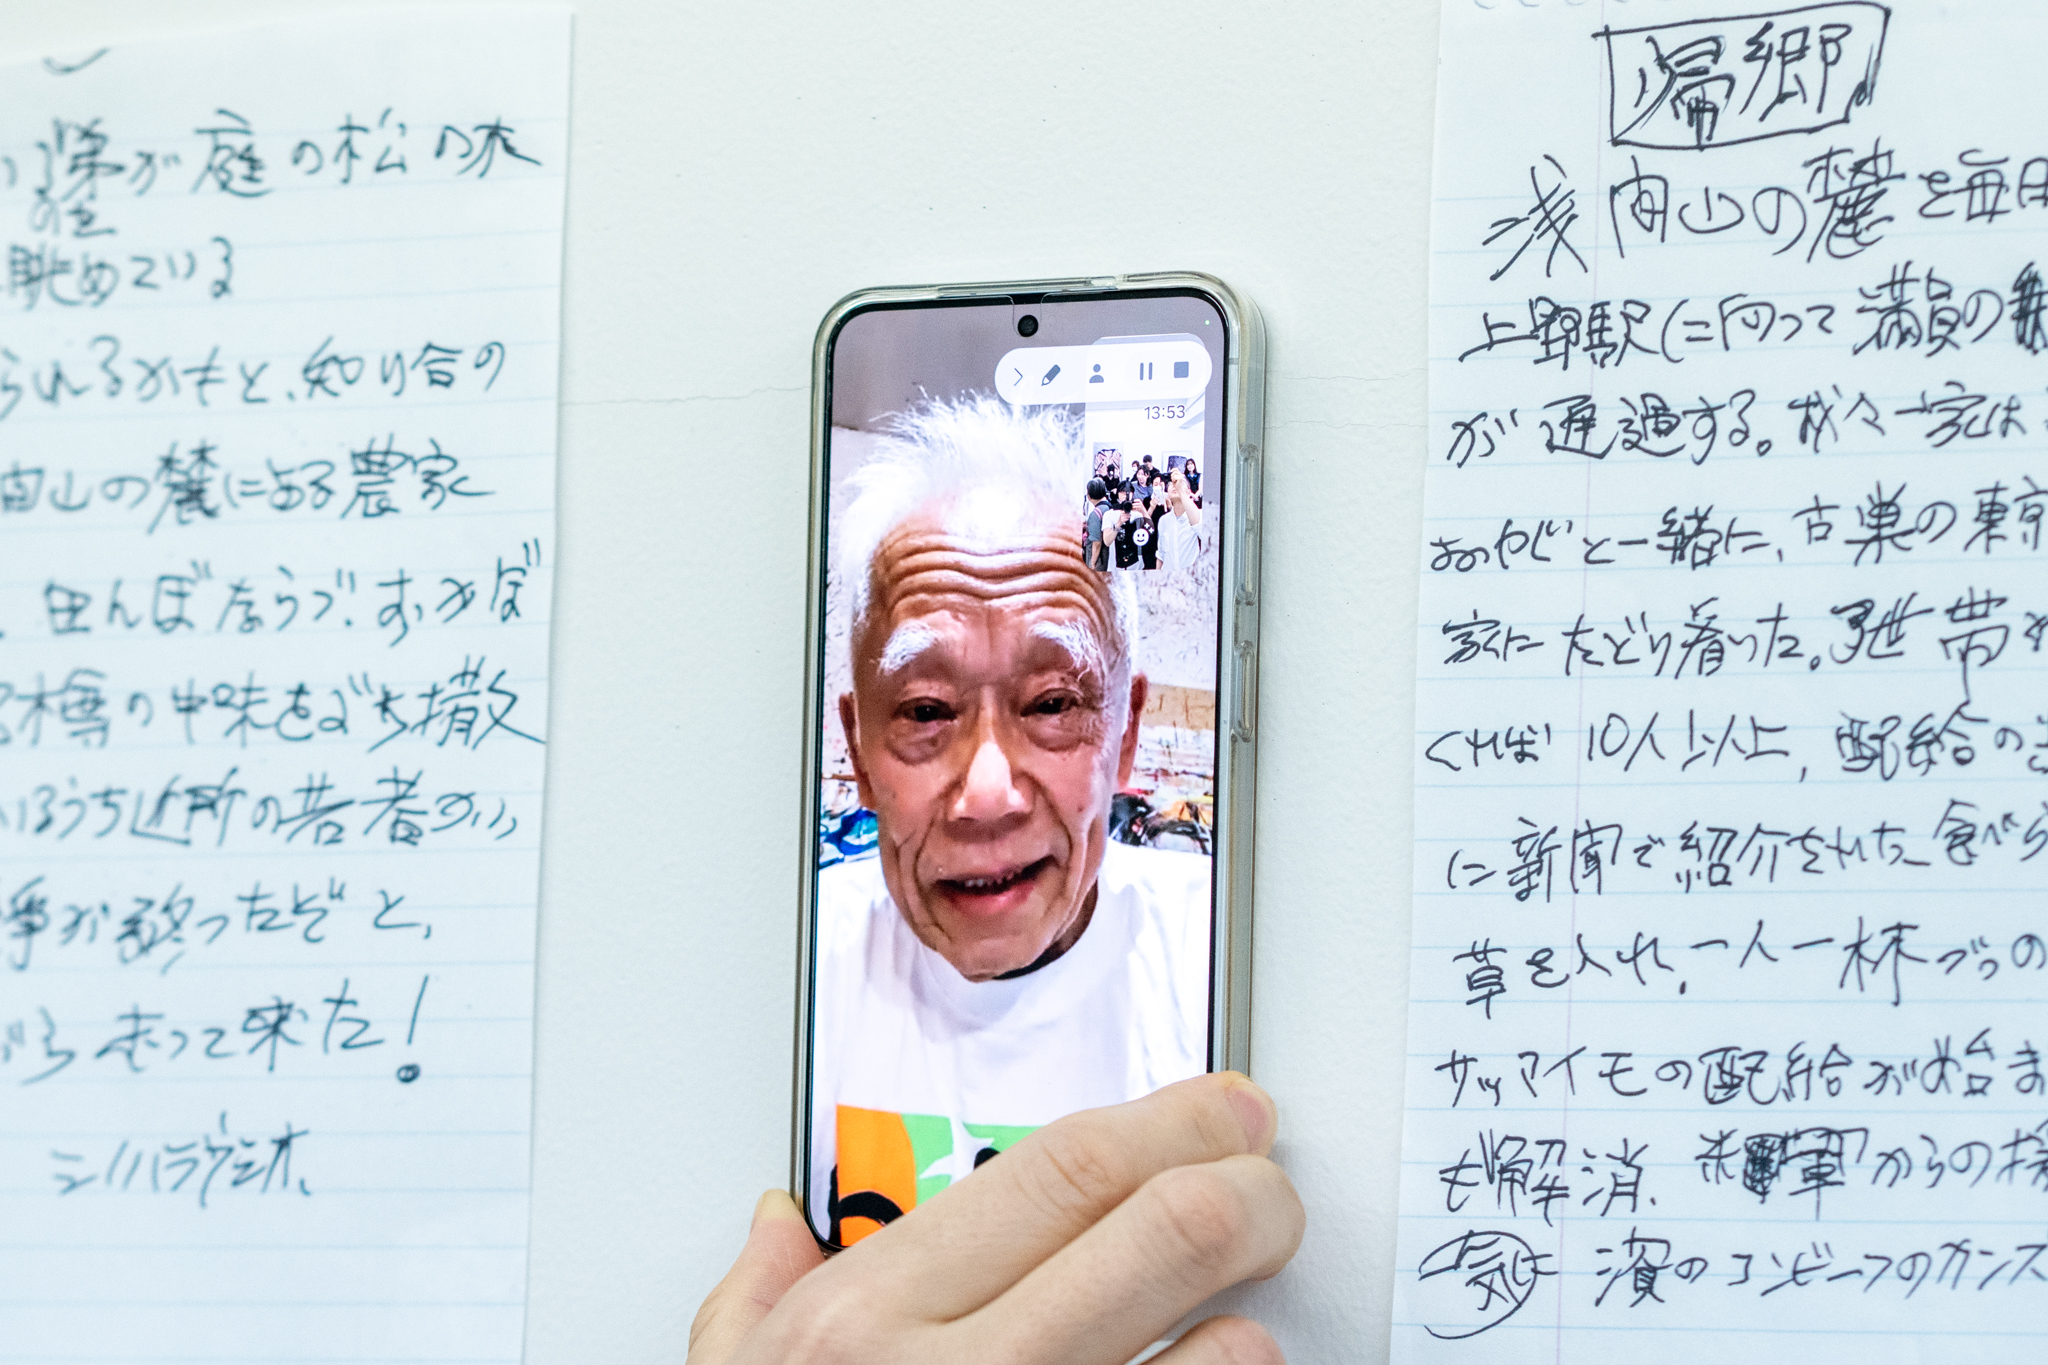 が庭の松の木
のを
眺めている
られるかもと、知り合の
間山の麓にある農家
、田んぼならづ、おかぼ
樽の中味をぶち撒
いるうち近所の若者が、
争が終ったぞと、
がら走って来た!
シノハラウシオ、
13:53
帰郷
浅間山の麓を毎日
上野駅に向って満員の
が通過する。我々一家は
おやじと一緒に、古巣の東京
家にたどり着いた。3世帯
くれば10人以上、配給の
に新聞で紹介をされた食べら
草を入れ、一人一杯づつの
サツマイモの配給が始ま
も解消、米軍からの
気に濱のコンビーフのカンス